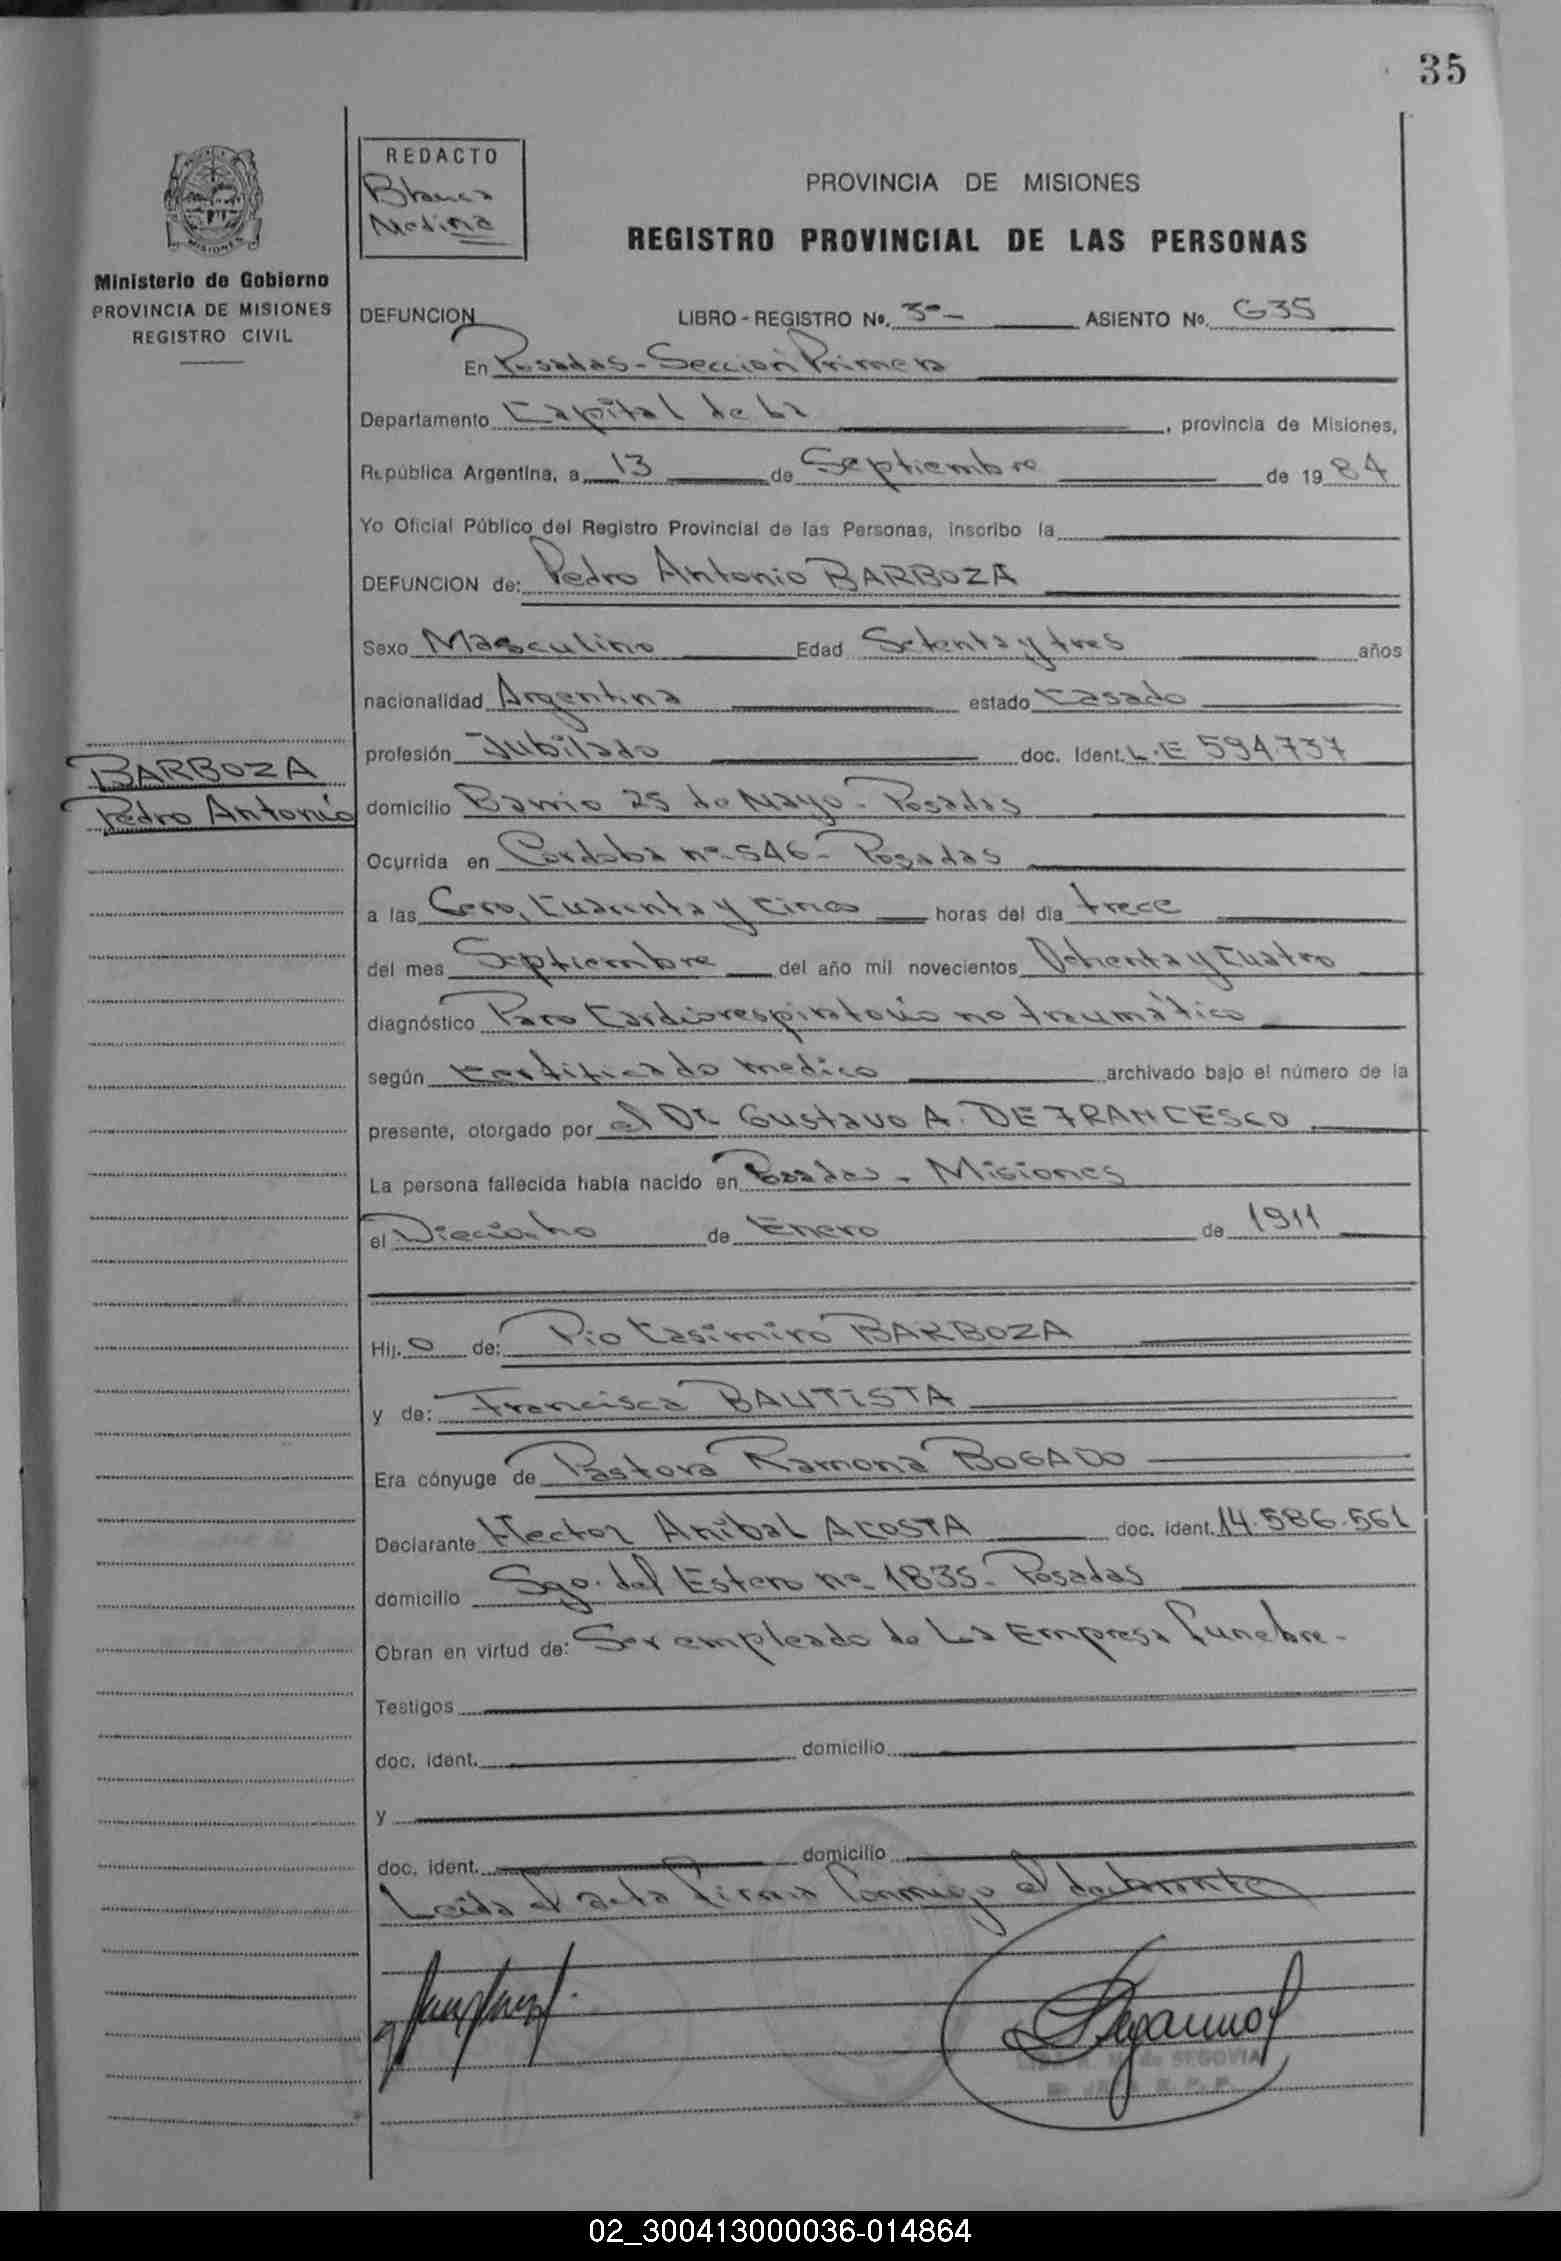 35
REDACTO
Blanca
Medina
MISIONES
Ministerio de Gobierno
PROVINCIA DE MISIONES
REGISTRO CIVIL
PROVINCIA DE MISIONES
REGISTRO PROVINCIAL DE LAS PERSONAS
DEFUNCION LIBRO - REGISTRO Nº. 3º- ASIENTO Nº. 635
En Posadas - Sección Primera
Departamento Capital de la , provincia de Misiones,
República Argentina, a 13 de Septiembre de 19 84
Yo Oficial Público del Registro Provincial de las Personas, inscribo la
DEFUNCION de: Pedro Antonio BARBOZA
Sexo Masculino Edad Setenta y tres años
nacionalidad Argentina estado Casado
profesión Jubilado doc. Ident. L.E 594.737
BARBOZA
Pedro Antonio
domicilio Barrio 25 de Mayo - Posadas
Ocurrida en Cordoba nº 546 - Posadas
a las Cero, Cuarenta y Cinco horas del día trece
del mes Septiembre del año mil novecientos Ochenta y Cuatro
diagnóstico Paro Cardiorespiratorio no traumático
según Certificado medico archivado bajo el número de la
presente, otorgado por el Dr. Gustavo A. DE FRANCESCO
La persona fallecida había nacido en Posadas - Misiones
el Dieciocho de Enero de 1911
Hij. o de: Pio Casimiro BARBOZA
y de: Francisca BAUTISTA
Era cónyuge de Pastora Ramona BOGADO
Declarante Hector Anibal ACOSTA doc. ident. 14.586.561
domicilio Sgo. del Estero nº 1835 - Posadas
Obran en virtud de: Ser empleado de La Empresa funebre -
Testigos
doc. ident. domicilio
y
doc. ident. domicilio
Leída el acta firma conmigo el declarante
de SEGOVIA
02_300413000036-014864